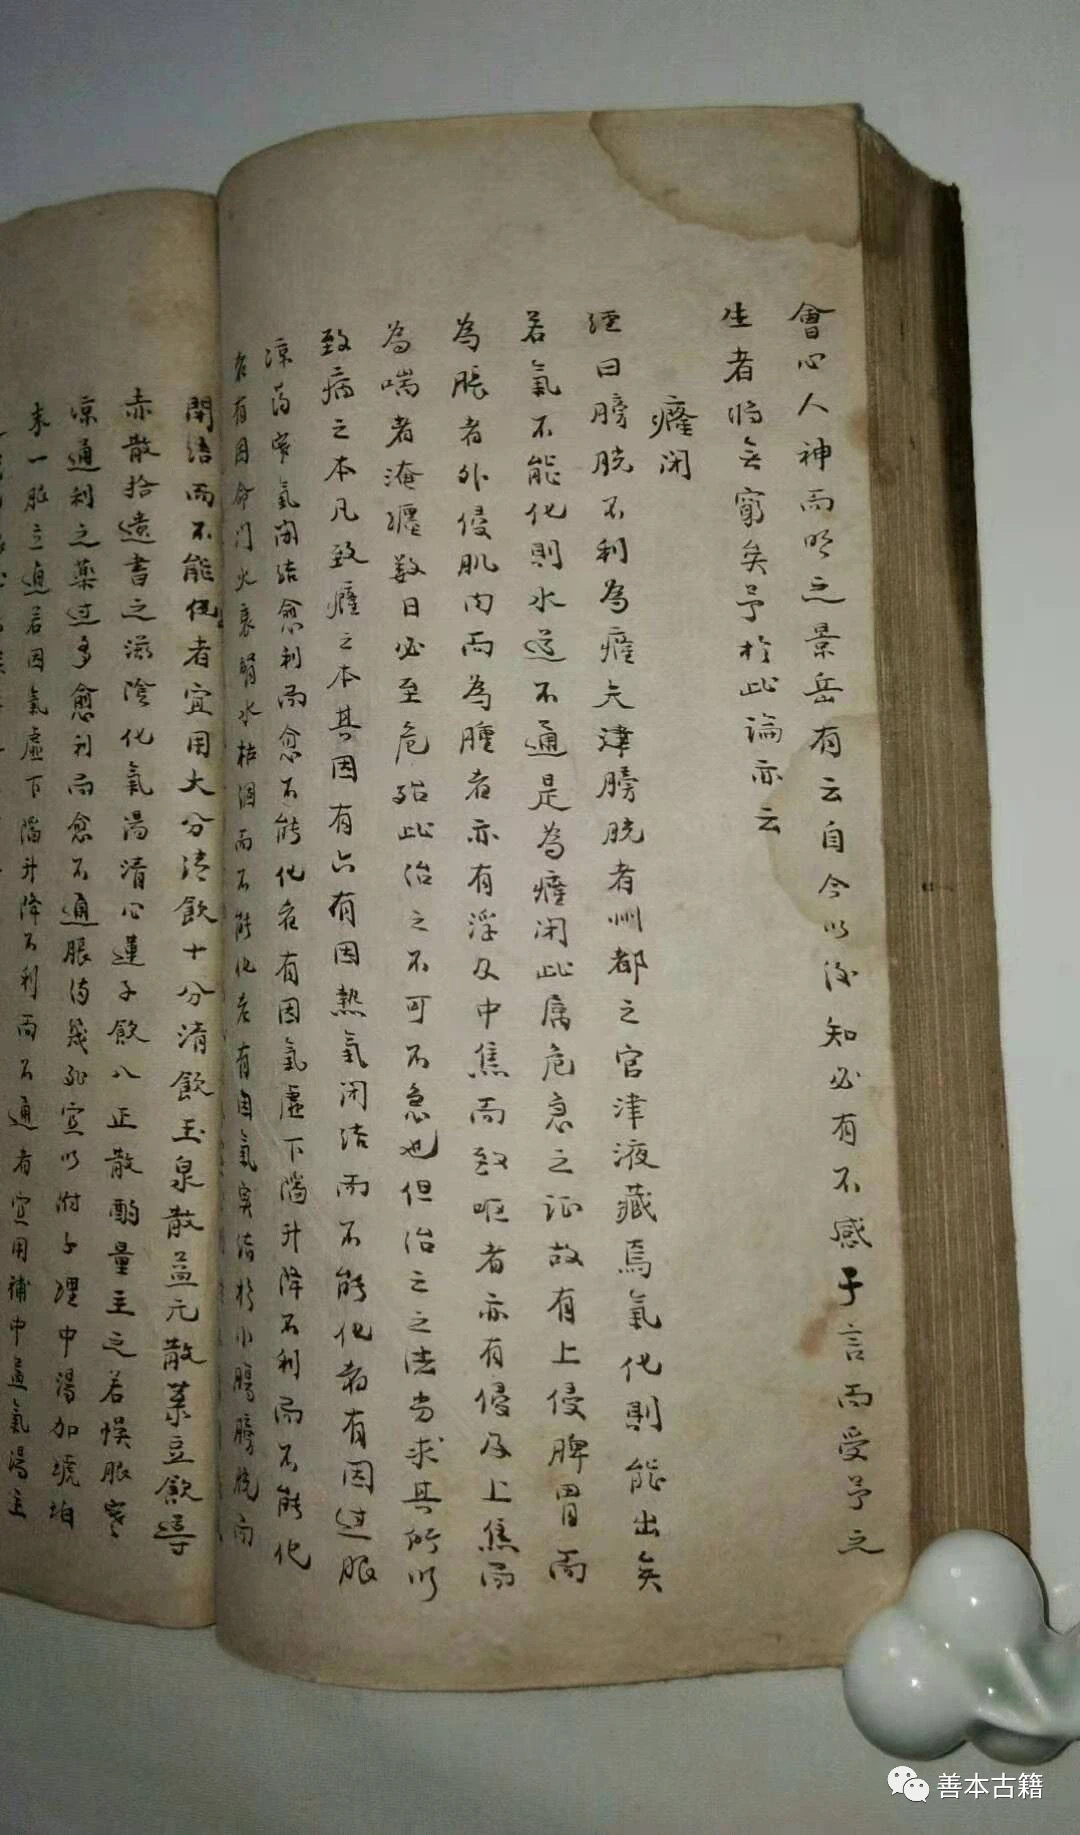 會心人神而明之景岳有云自今以後知必有不感于言而受予之
生者將無窮矣予於此論亦云
癃闭
經曰膀胱不利為癃夫津膀胱者州都之官津液藏焉氣化則能出矣
若氣不能化則水道不通是為癃闭此属危急之证故有上侵脾胃而
為脹者外侵肌肉而為腫者亦有浮及中焦而致嘔者亦有侵及上焦而
為喘者淹纏数日必至危殆此治之不可不急也但治之之法当求其所以
致病之本凡致癃之本其因有六有因熱氣闭结而不能化者有因过服
凉药寒氣闭结愈利而愈不能化者有因氣虚下陷升降不利而不能化
者有因命门火衰腎水枯涸而不能化者有因氣実结於小腸膀胱而
閉结而不能便者宜用大分清飲十分清飲玉泉散益元散菉豆飲導
赤散拾遗書之滋陰化氣湯清心蓮子飲八正散酌量主之若悮服寒
凉通利之薬过多愈利而愈不通脹满幾死宜以附子理中湯加琥珀
末一服立通若因氣虚下陷升降不利而不通者宜用補中益氣湯主
善本古籍